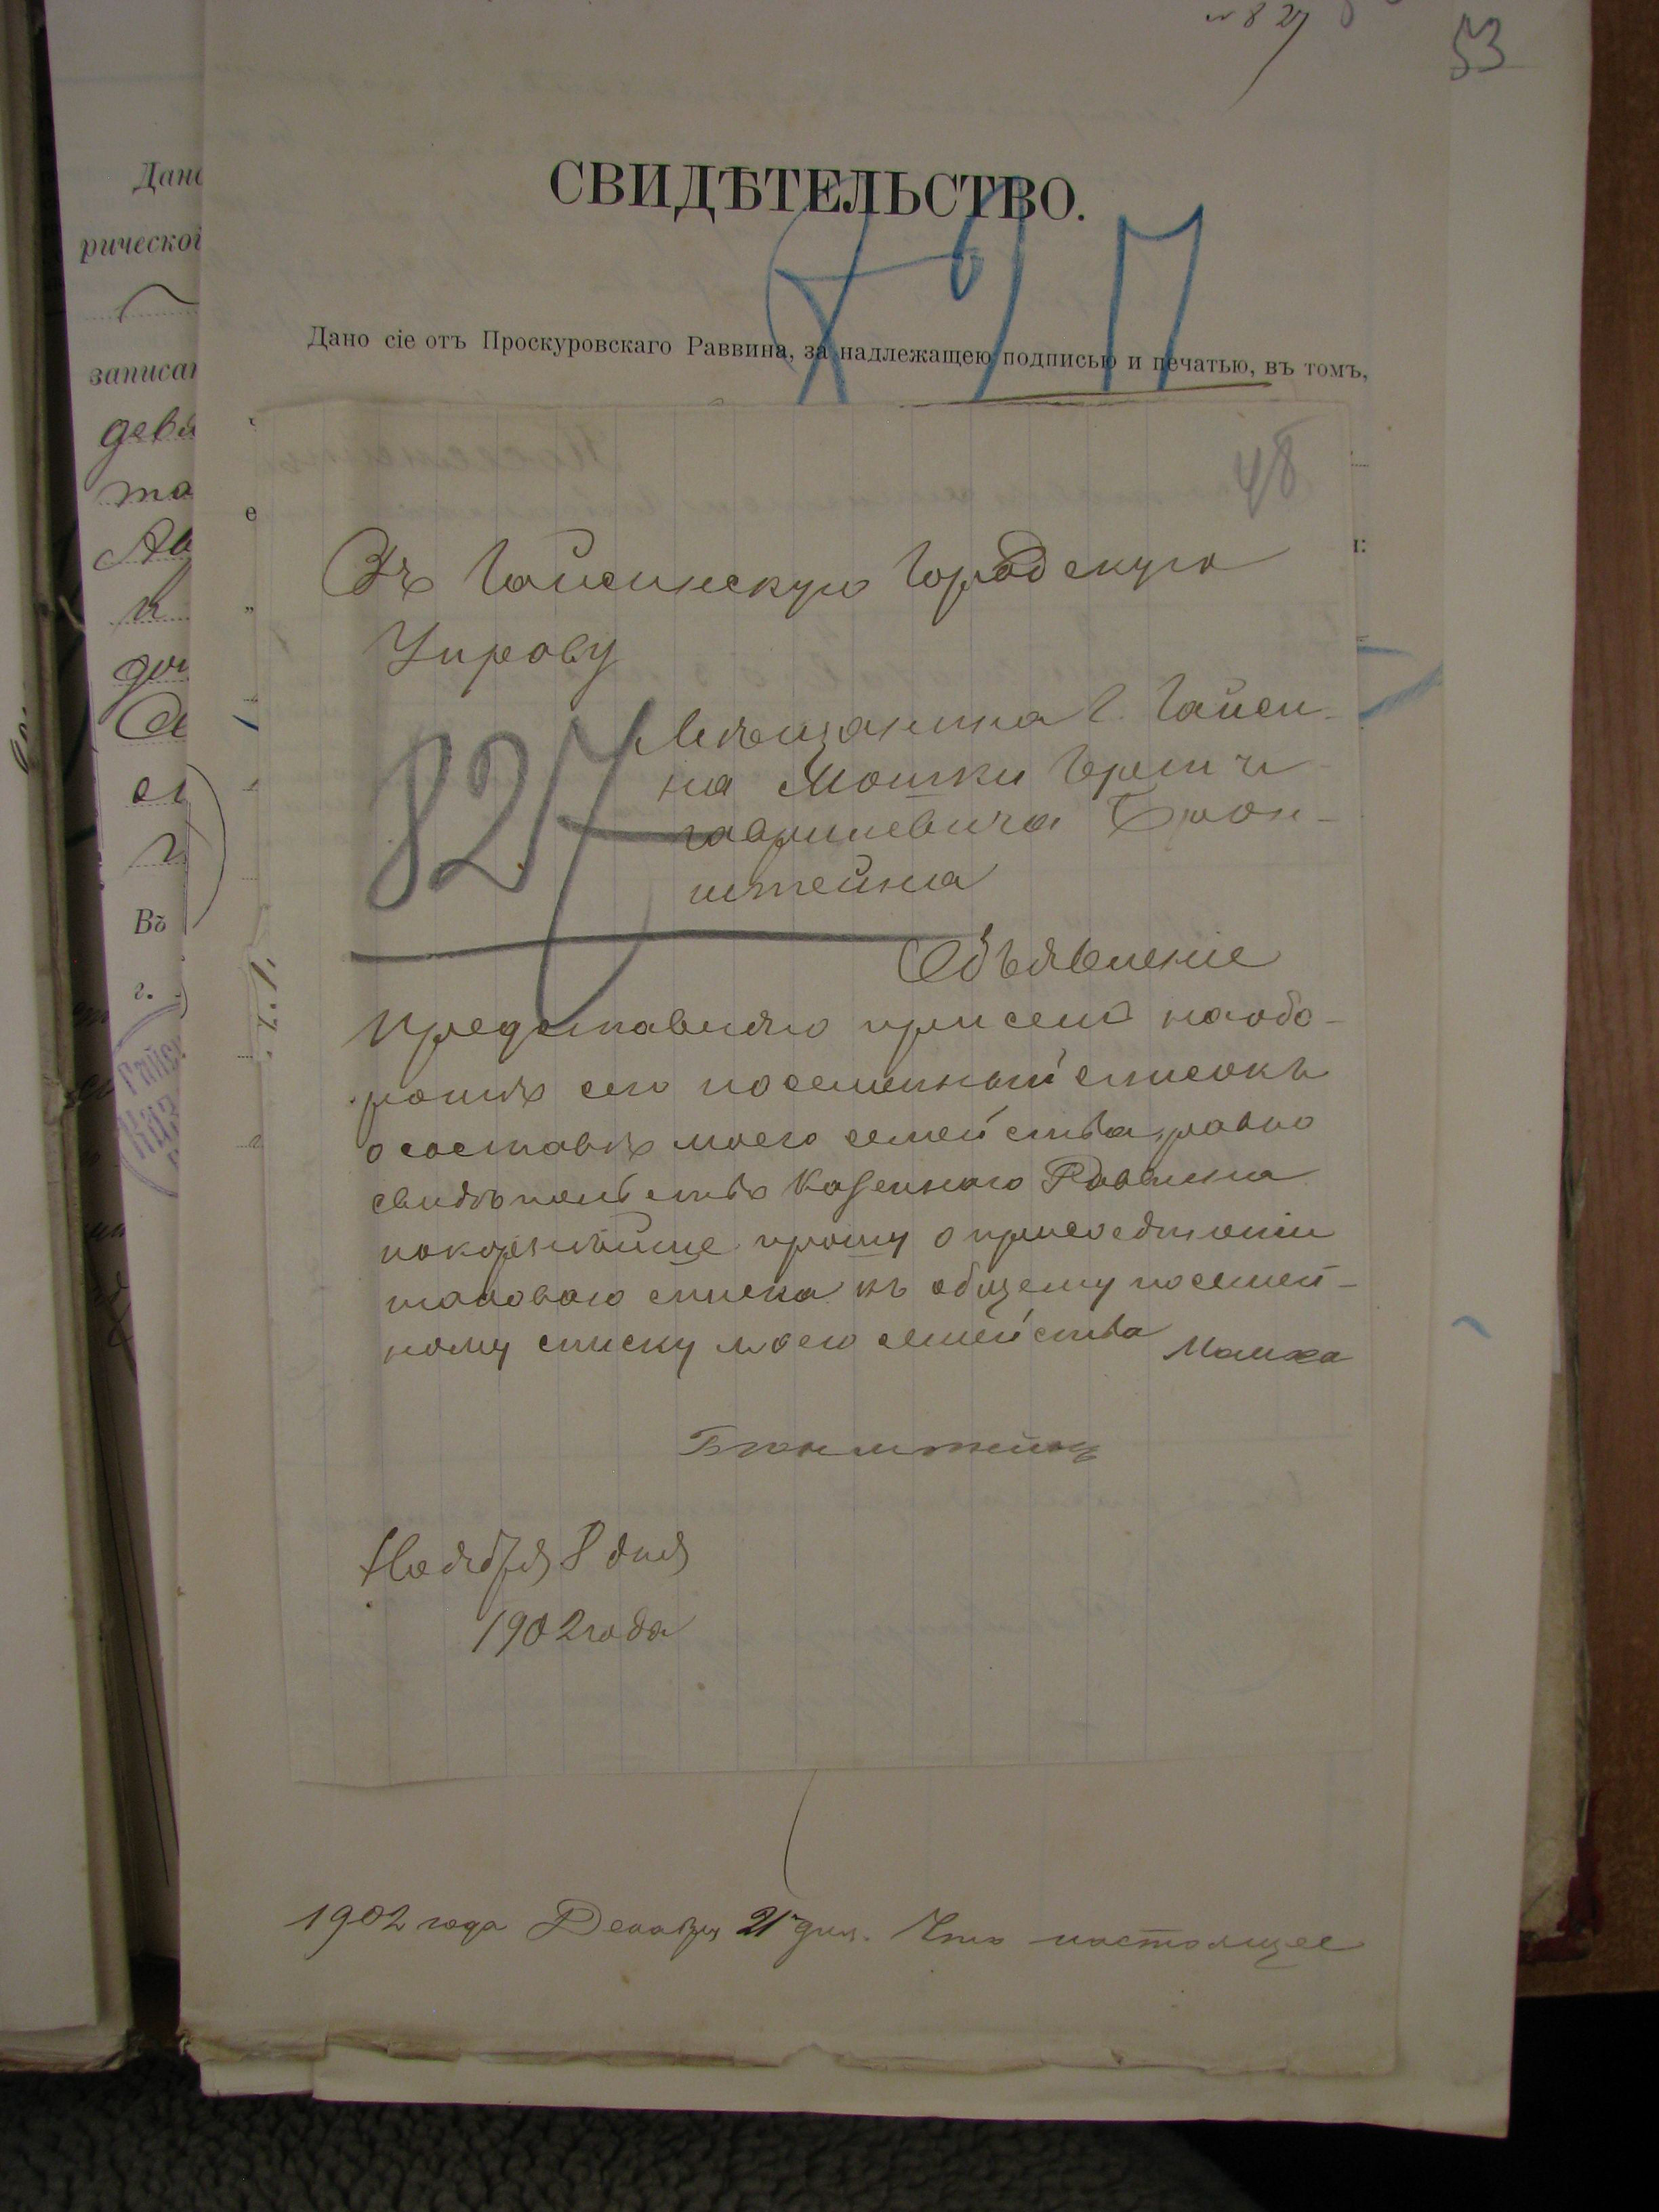 № 827
53
СВИДѢТЕЛЬСТВО.
Дано сіе отъ Проскуровскаго Раввина, за надлежащею подписью и печатью, въ томъ,
48
Въ Гайсинскую Городскую
Управу
827
Мѣщанина г. Гайси-
на Мошки Герши
Гавриілевича Брон-
штейна
Объявленіе
Представляю при семъ на обо-
ротѣ сего посемейный списокъ
о составѣ моего семейства, равно
свидѣтельство Казеннаго Раввина
покорнѣйше прошу о присоединеніи
таковаго списка къ общему посемей-
ному списку моего семейства Мошка
Бронштейнъ
Ноября 8 дня
1902 года
1902 года Декабря 21 дня. Что настоящее
Дано
рической
записан
девя
та
Ав
и
доч
Въ
г.